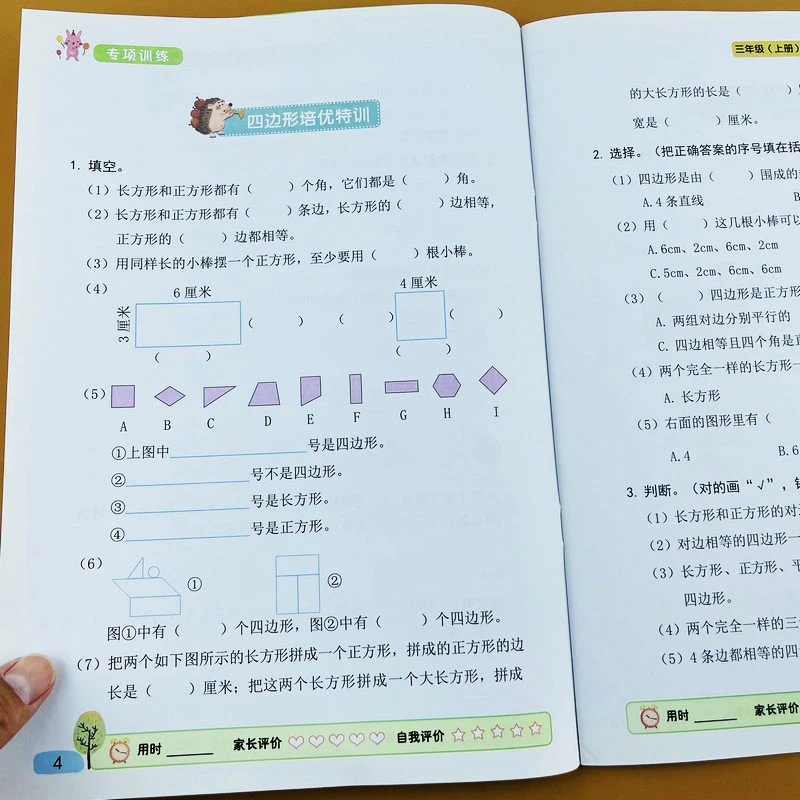 专项训练
四边形培优特训
1. 填空。
(1) 长方形和正方形都有( )个角,它们都是( )角。
(2) 长方形和正方形都有( )条边,长方形的( )边相等,
正方形的( )边都相等。
(3) 用同样长的小棒摆一个正方形,至少要用( )根小棒。
(4)
6厘米
4厘米
3厘米
( )
( )
( )
( )
( )
(5)
A B C D E F G H I
①上图中____号是四边形。
②____号不是四边形。
③____号是长方形。
④____号是正方形。
(6)
①
②
图①中有( )个四边形,图②中有( )个四边形。
(7) 把两个如下图所示的长方形拼成一个正方形,拼成的正方形的边
长是( )厘米;把这两个长方形拼成一个大长方形,拼成
用时____ 家长评价 自我评价
4
三年级(上册)
的大长方形的长是( )
宽是( )厘米。
2. 选择。(把正确答案的序号填在括
(1) 四边形是由( )围成的
A.4条直线
(2) 用( )这几根小棒可以
A.6cm、2cm、6cm、2cm
C.5cm、2cm、6cm、6cm
(3) ( )四边形是正方形
A. 两组对边分别平行的
C. 四边相等且四个角是直
(4) 两个完全一样的长方形一
A. 长方形
(5) 右面的图形里有(
A.4 B.6
3. 判断。(对的画“√”,
(1) 长方形和正方形的对边
(2) 对边相等的四边形一
(3) 长方形、正方形、平
四边形。
(4) 两个完全一样的三
(5) 4条边都相等的四
用时____ 家长评价